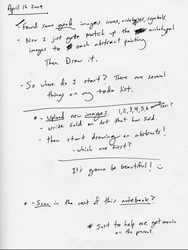 April 16 2009
* Found some good images, icons, archetypes, symbols.
- Now I just gotta match up the archetypal
images to each abstract painting
Then Draw it.
- So where do I start? There are several
things on my todo list.
* - Upload new images. 1, 2, 3, 4, 5, 6
- write sold on Art that has sold.
- then start drawing on abstracts!
- which one first?
It's gonna be beautiful!
* - Scan in the rest of this notebook?
* just to help me get moving
on the